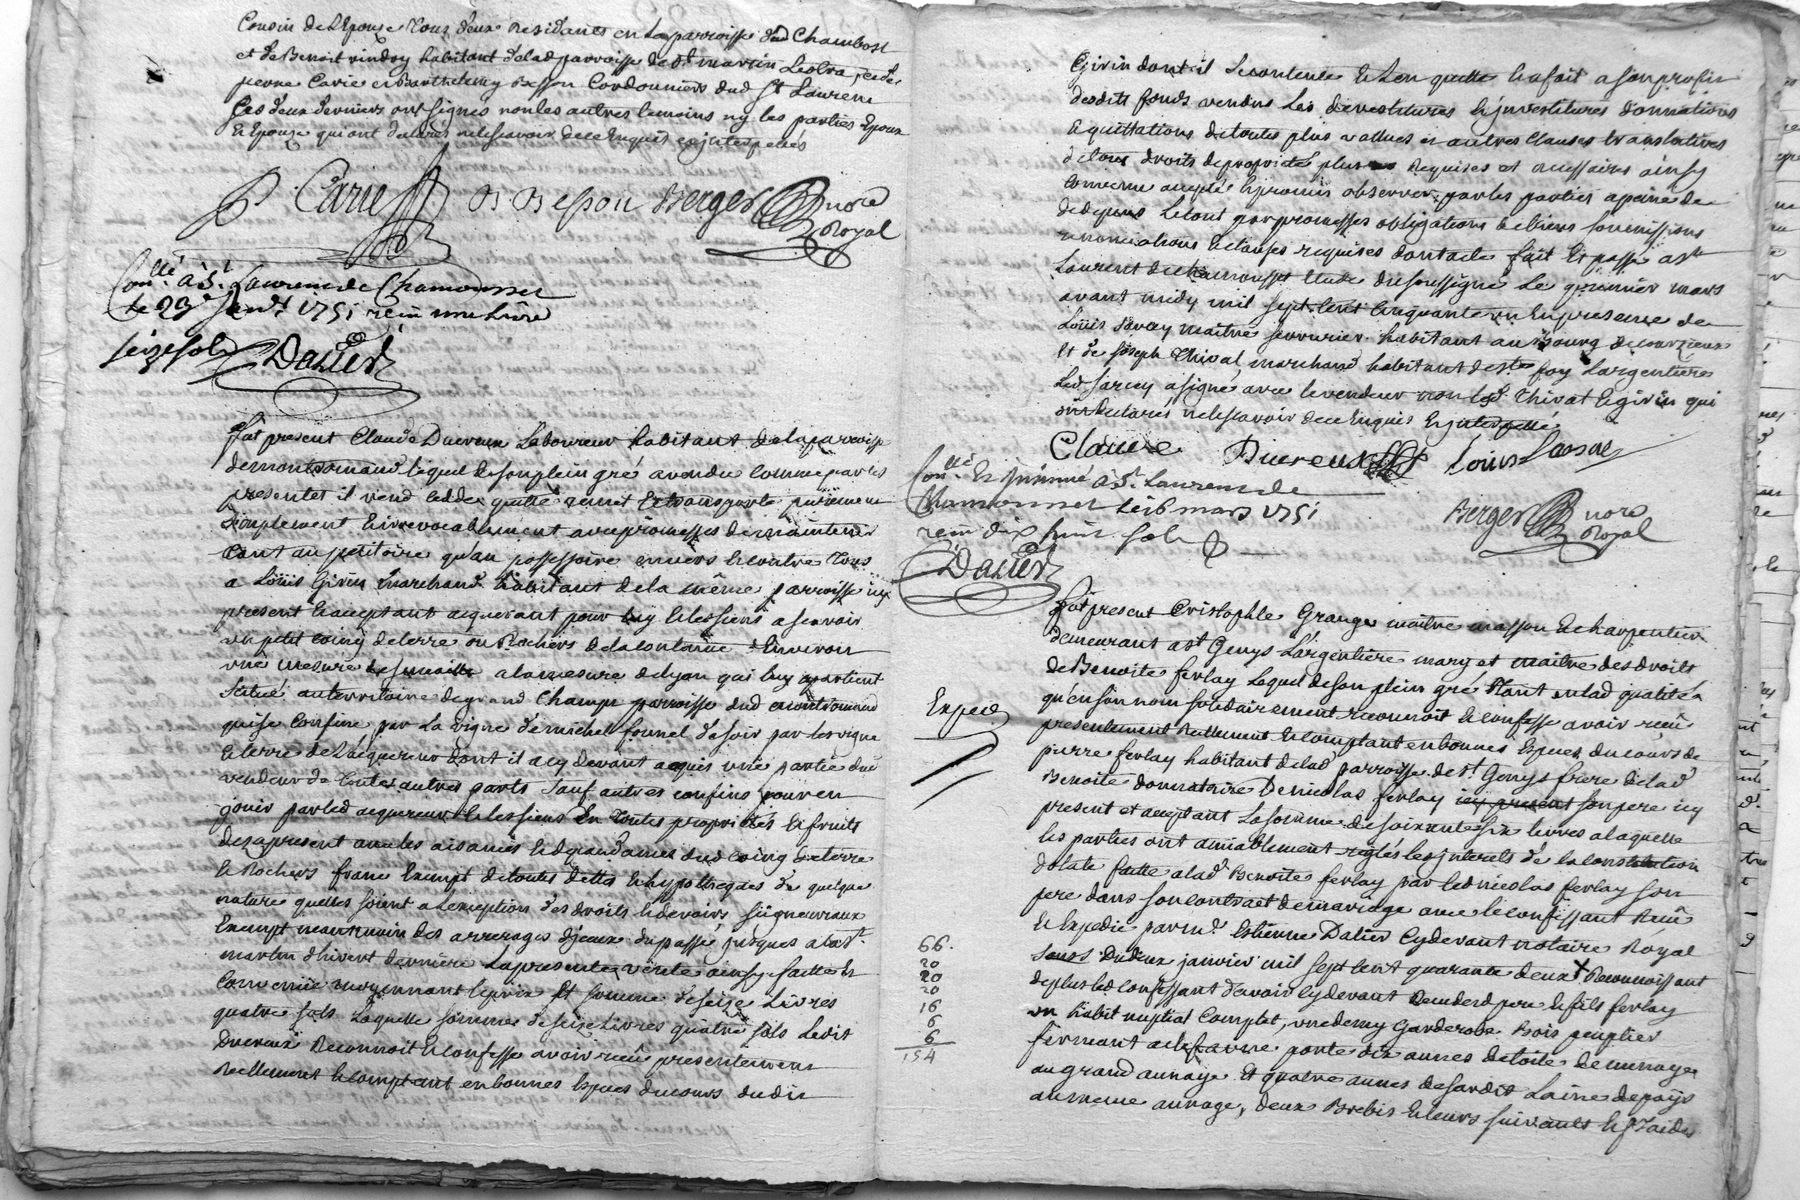 Cousin de l'Epouse tous deux Residants en la parroisse dud Chambost
et de Benoit vindry habitant de lad parroisse de St martin Lestra
pierre Carie et Barthelemy Besson Cordonniers dud St Laurent
Ces deux derniers ont signés non les autres temoins ny les parties Epoux
et Epouze qui ont declarés ne le scavoir de ce Enquis et jnterpellés
P. Carie B Besson Berger nore
Royal
Conllé à St Laurens de Chamousset
le 23e 1751 reçu une livre
seize sols Dalier
fut present Claude Ducreux Laboureur habitant de la parroisse
de montromand lequel de son plein gré a vendu comme par les
presentes il vend cedde quitte remet et transporte purement
simplement et irrevocablement avec promesses de maintenir
tant au petitoire qu'au possessoire envers et contre tous
a Loüis Girin marchand habitant de la même parroisse icy
present et acceptant acquerant pour luy et les siens a scavoir
un petit coing de terre ou Rochers de la contenüe d'Environ
une mesure de semaille a la mesure de lyon qui luy apartient
scitué au territoire de grand Champ parroisse dud montromand
qui se confine par la vigne de michel fournel de soir par les vigne
et terre de l'acquereur dont il a cy devant acquis une partie dud
vendeur de toutes autres parts sauf autres confins pour en
jouir par led acquereur et les siens En toutes proprietés et fruits
des a present avec les aisances et dependances dud coing de terre
et Rochers franc Exempt de toutes dettes et hypotheques de quelque
nature quelles soient a l'exception des droits et devoirs seigneuriaux
Exempt neantmoin des arrerages d'jceux du passé jusques a la St
martin d'hivert derniere la presente vente ainsy faitte et
convenüe moyennant le prix Et somme de seize Livres
quatre sols laquelle somme de seize Livres quatre sols ledit
Ducreux Reconnoit et confesse avoir reçu presentement
Reellement et comptant en bonnes Especes du cours dudit
Girin dont il se contente et l'en quitte et a fait a son profit
desdits fonds vendus les devestitures et jnvestitures donnations
et quittations de toutes plus vallues et autres clauses translatives
de tous droits de proprieté plus Requises et necessaires ainsy
convenu accepté et promis observer par les parties a peine de
dedepens le tout par promesses obligations de biens soumissions
renonciations et clauses requises dont acte fait Et passé a St
Laurent de chamousset Etude du soussigné Le premier mars
avant midy mil sept cent cinquante un En presence de
Loüis Sarcey maitre serrurier habitant au Bourg de courzieux
Et de Joseph Thivat marchand habitant de ste foy Largentiere
Led Sarcey a signé avec le vendeur non led. Thivat et girin qui
ont declarés ne le scavoir de ce Enquis Et jnterpellé
Claude Ducreux Louis
Conllé Et jnsinué à St Laurens de
Chamousset le 16 mars 1751
reçu dix huit sols
Berger nore
Royal
Dalier
fut present Cristophle Grange maitre masson et charpentier
demeurant a St Genys L'argentiere mary et maitre des droits
de Benoite ferlay Lequel de son plein gré Etant en lad qualité
qu'en son nom solidairement reconnoit et confesse avoir reçu
presentement Reellement et comptant en bonnes Especes du cours de
pierre ferlay habitant de lad parroisse de St Genys frere de lad
Benoite donnataire de nicolas ferlay icy present son pere icy
present et acceptant la somme de soixante six livres a laquelle
les parties ont amiablement reglés les jnterets de la constitution
dotale faitte a lad Benoite ferlay par led nicolas ferlay son
pere dans son contract de mariage avec le confessant Reçu
et Expedié par me Estienne Dalier cy devant notaire Royal
sous du deux janvier mil sept cent quarante deux Reconnoissant
de plus led confessant d'avoir cy devant Reçu desd pere et fils ferlay
un habit nuptial complet, une demy Garderobe Bois peuplier
fermant a clef avec porte dix aunes de toile de menage
au grand aunage Et quatre aunes de sardis Laine de pays
au meme aunage, deux Brebis et leurs suivants
Exped
66.
20
20
20
16
6
6
154